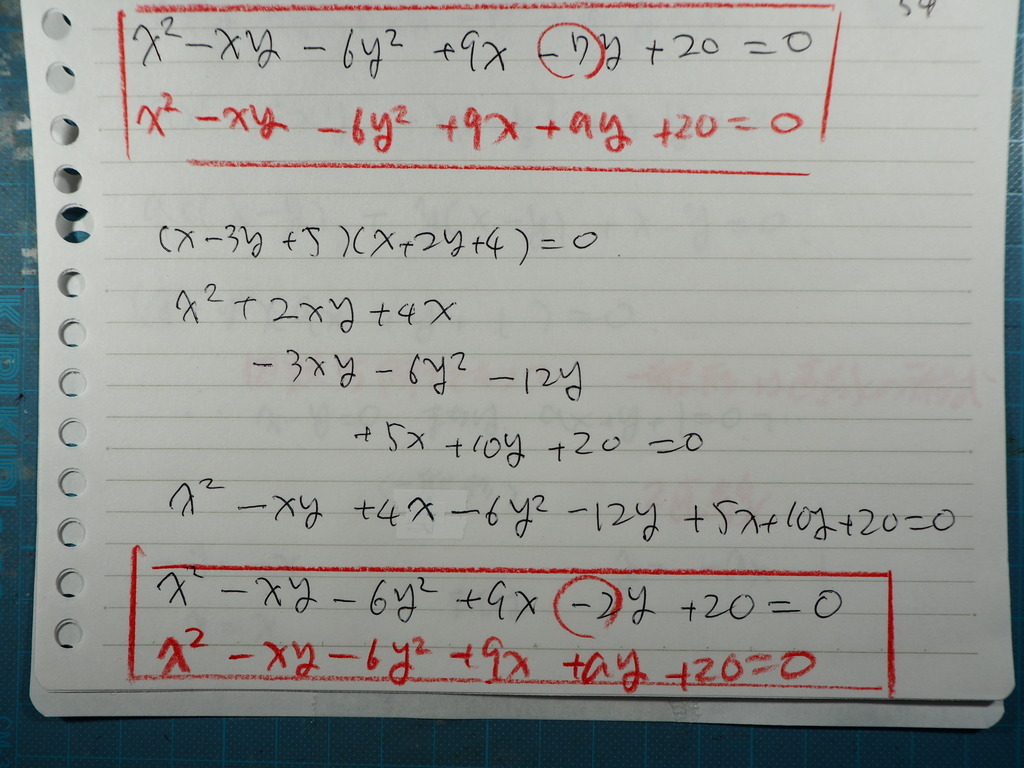 54
x² - xy - 6y² + 9x - 7y + 20 = 0
x² - xy - 6y² + 9x + ay + 20 = 0
(x - 3y + 5)(x + 2y + 4) = 0
x² + 2xy + 4x
- 3xy - 6y² - 12y
+ 5x + 10y + 20 = 0
x² - xy + 4x - 6y² - 12y + 5x + 10y + 20 = 0
x² - xy - 6y² + 9x - 2y + 20 = 0
x² - xy - 6y² + 9x + ay + 20 = 0